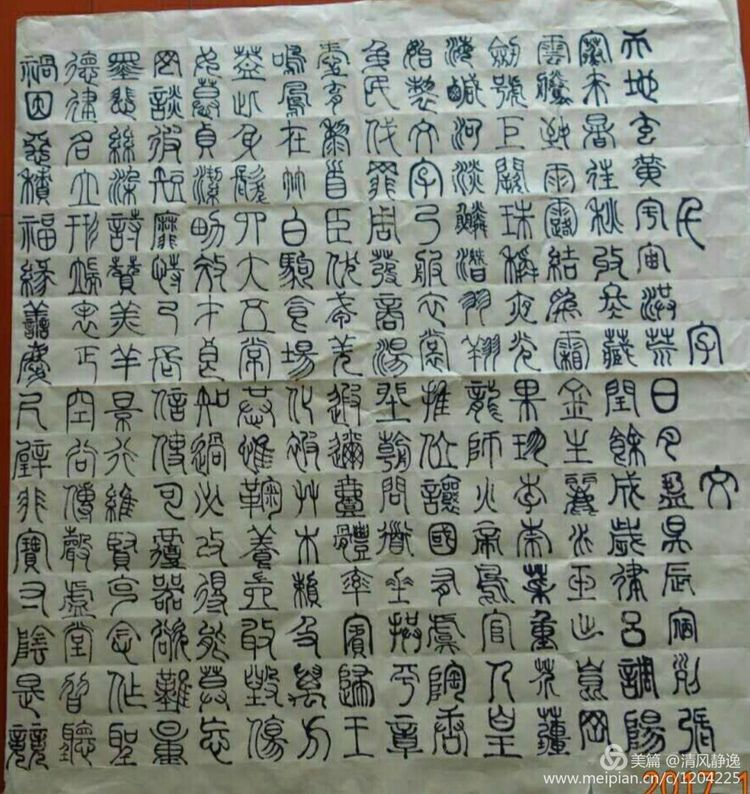 千字文
天地玄黃宇宙洪荒日月盈昃辰宿列張
寒來暑往秋收冬藏閏餘成歲律呂調陽
雲騰致雨露結為霜金生麗水玉出崑岡
劍號巨闕珠稱夜光果珍李柰菜重芥薑
海鹹河淡鱗潛羽翔龍師火帝鳥官人皇
始製文字乃服衣裳推位讓國有虞陶唐
弔民伐罪周發商湯坐朝問道垂拱平章
愛育黎首臣伏戎羌遐邇壹體率賓歸王
鳴鳳在竹白駒食場化被草木賴及萬方
蓋此身髮四大五常恭惟鞠養豈敢毀傷
女慕貞潔男效才良知過必改得能莫忘
罔談彼短靡恃己長信使可覆器欲難量
墨悲絲染詩讚羔羊景行維賢克念作聖
德建名立形端表正空谷傳聲虛堂習聽
禍因惡積福緣善慶尺璧非寶寸陰是競
美篇 @清风静逸
www.meipian.cn/c/1204225